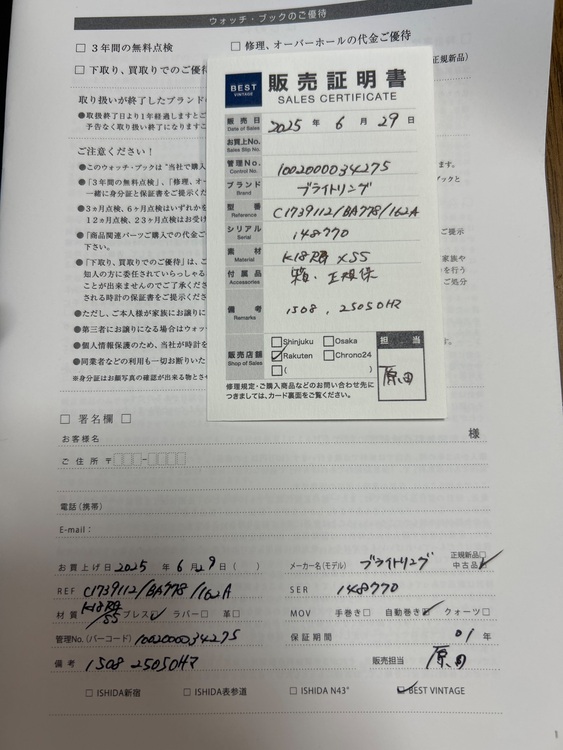 ウォッチ・ブックのご優待
□ 3年間の無料点検
□ 修理、オーバーホールの代金ご優待
□ 下取り、買取りでのご優待
正規新品)
取り扱いが終了したブランド
●取扱終了日より1年経過しますと
予告なく取り扱い終了になります
ご注意ください!
●このウォッチ・ブックは"当社で購入
ます。
●「3年間の無料点検」、「修理、オ
ブックと
一緒に身分証と保証書をご提示くだ
●3ヵ月点検、6ヶ月点検はいずれかを
12ヵ月点検、23ヶ月点検はお受け
●「商品関連パーツご購入での代金ご
ご提示
下さい。
●「下取り、買取りでのご優待」は、ご
家族や
知人の方に委任されていらっしゃる
を行う
ことが出来ませんのでご了承くださ
ご処分
される時計の保証書をご提示くださ
●ただし、ご本人様が家族にお譲りに
●第三者にお譲りになる場合はウォッ
●個人情報保護のため、当社が時計を
●同業者などの利用も一切お断りいた
※身分証はお顔写真の確認が出来る物とさせ
BEST
VINTAGE
販売証明書
SALES CERTIFICATE
販売日
Date of Sales
2025 年 6 月 29 日
お買上No.
Sales Slip No.
管理No.
Control No.
1002000034275
ブランド
Brand
ブライトリング
型番
Reference
C1739112/BA778/162A
シリアル
Serial
148770
素材
Material
K18RG×SS
付属品
Accessories
箱・正規保
備考
Remarks
1508, 25050HR
販売店舗
Shop of Sales
□Shinjuku □Osaka
☑Rakuten □Chrono24
□( )
担当
原田
修理規定・ご購入商品などのお問い合わせ先に
つきましては、カード裏面をご覧ください。
□ 署名欄 □
お客様名
様
ご住所 〒□□□-□□□□
電話(携帯)
E-mail:
お買上げ日 2025 年 6 月 29 日 ( )
メーカー名(モデル) ブライトリング
正規新品□
中古品☑
REF C1739112/BA778/162A
SER 148770
材質 K18RG/SS ブレス☑ ラバー□ 革□
MOV 手巻き□ 自動巻き☑ クォーツ□
管理No.(バーコード) 1002000034275
保証期間 01 年
備考 1508 25050HR
販売担当 原田
□ ISHIDA新宿 □ ISHIDA表参道 □ ISHIDA N43° ☑ BEST VINTAGE